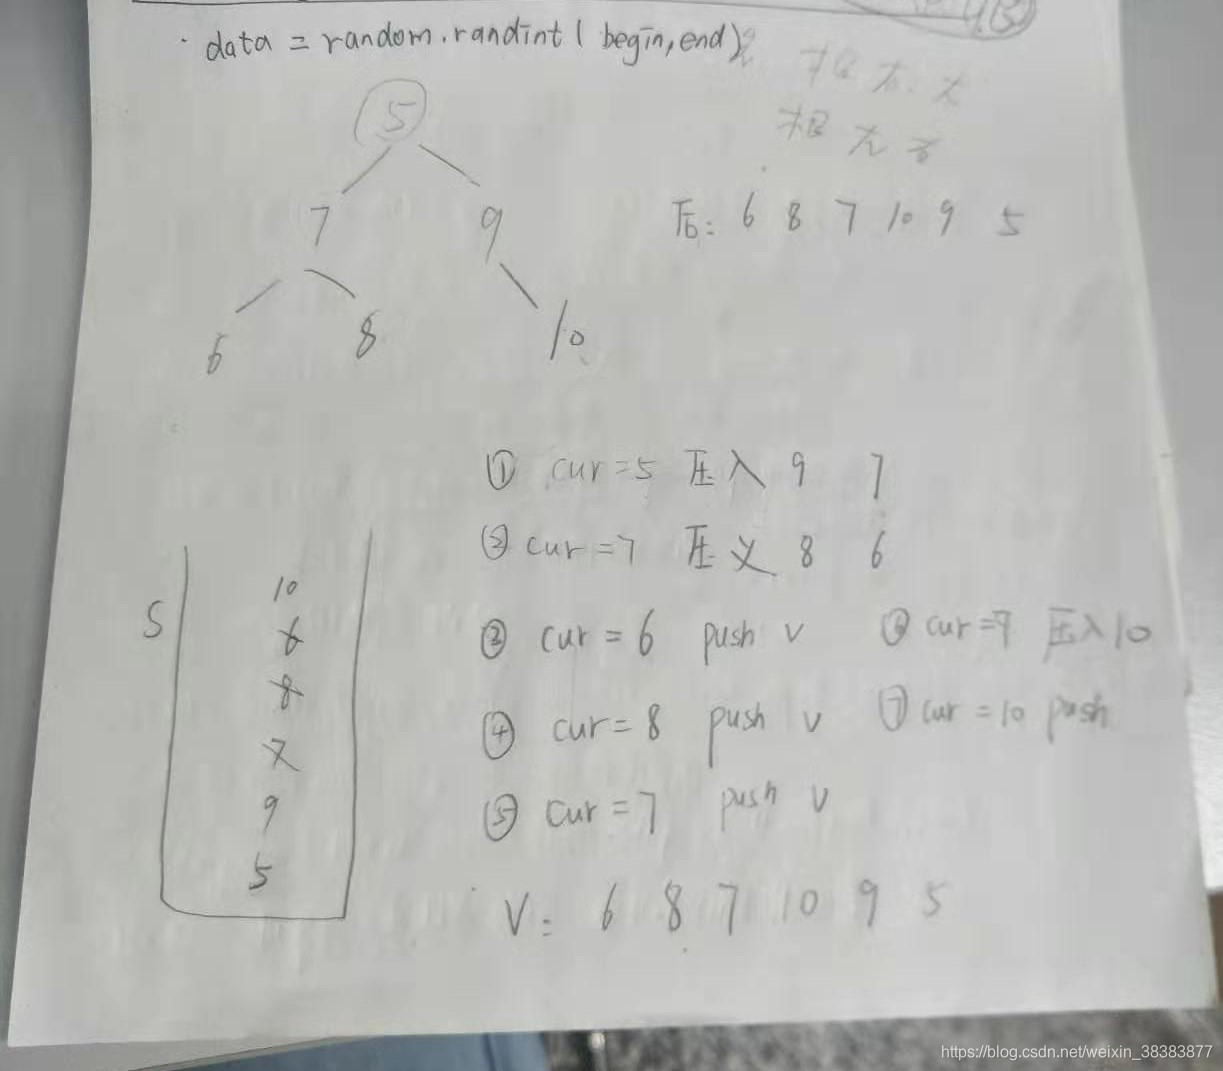 · data = random.randint ( begin, end )
5
根 左 右
7 9
后: 6 8 7 10 9 5
6 8 10
① cur = 5 压入 9 7
② cur = 7 压 8 6
S
10
6
8
7
9
5
③ cur = 6 push v
cur = 9 压入 10
④ cur = 8 push v
⑦ cur = 10 push
⑤ cur = 7 push v
V: 6 8 7 10 9 5
https://blog.csdn.net/weixin_38383877